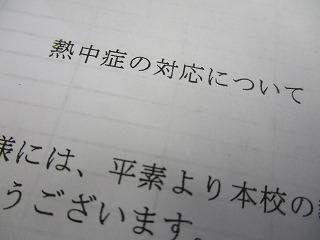 熱中症の対応について
様には、平素より本校の
うございます。